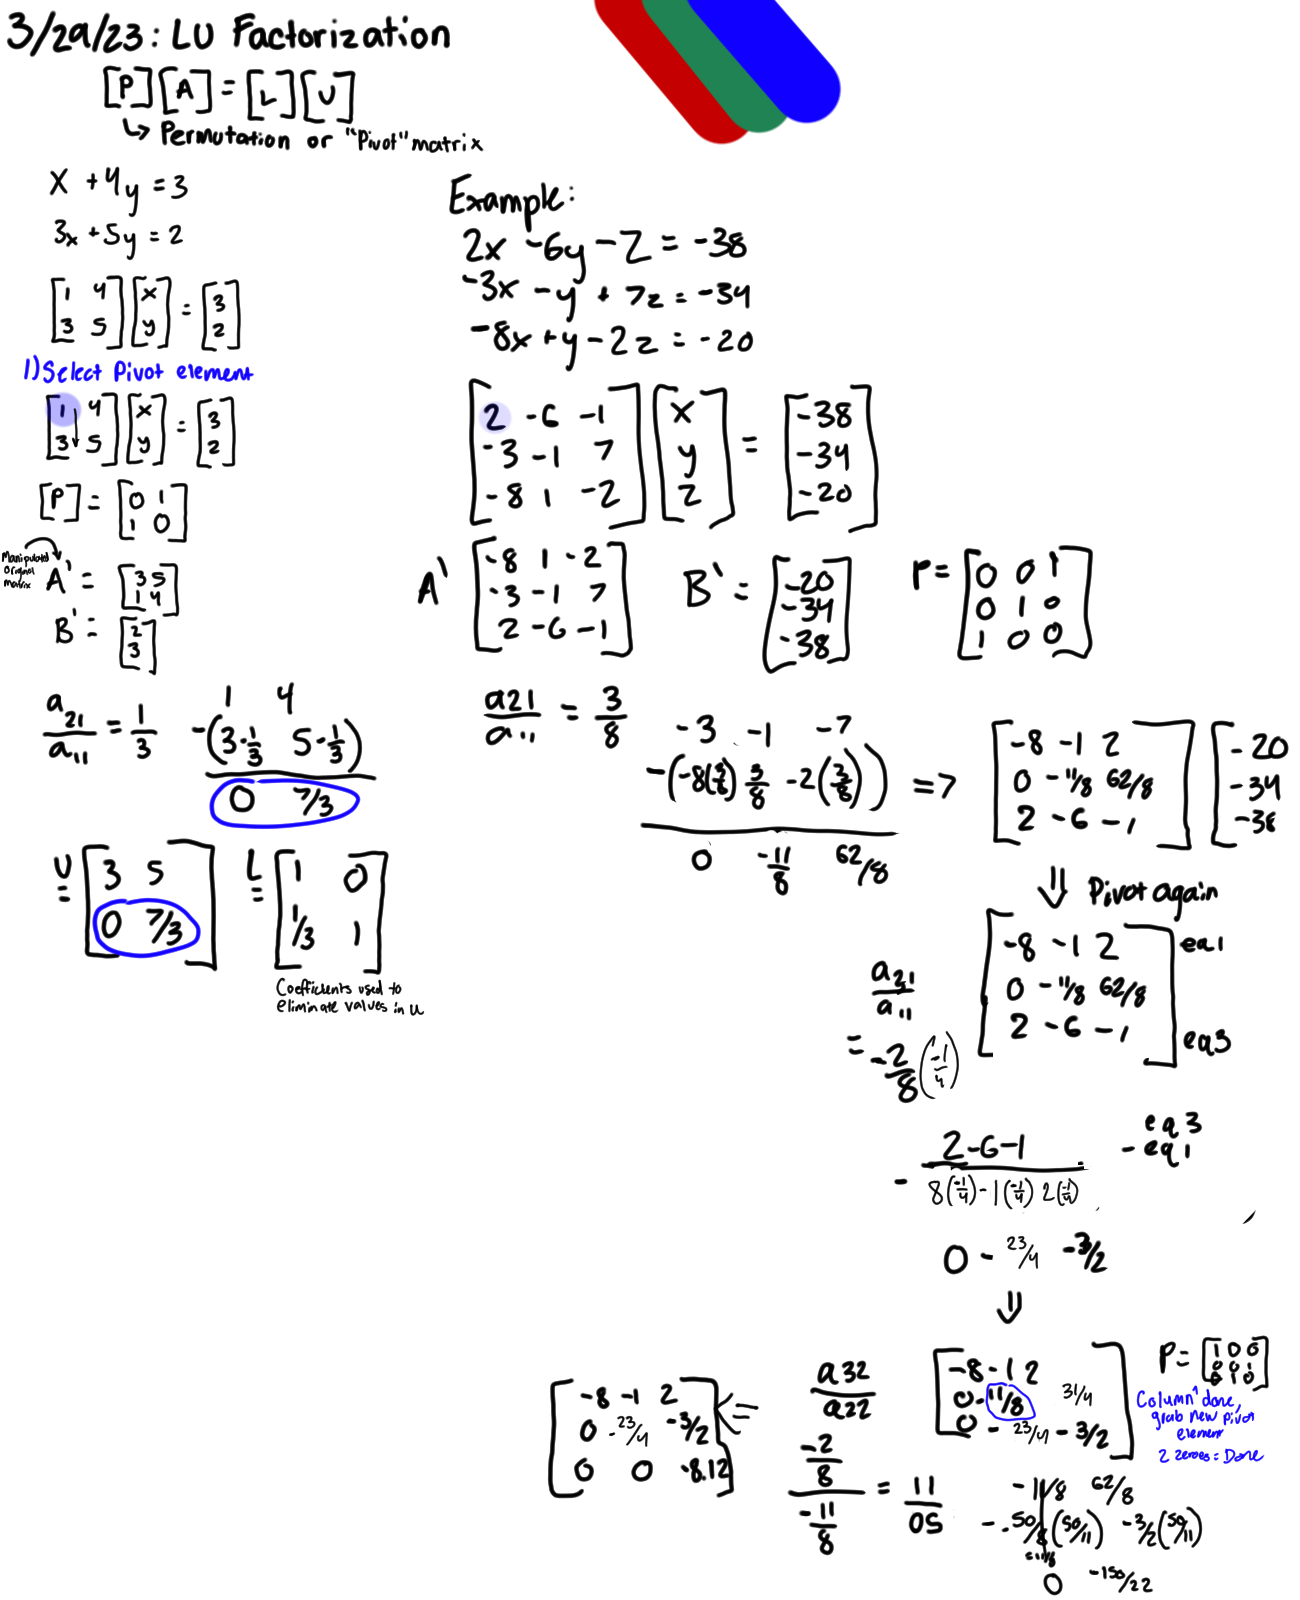 3/29/23: LU Factorization
[P][A] = [L][U]
↳ Permutation or "Pivot" matrix
x + 4y = 3
3x + 5y = 2
[1 4] [x] = [3]
[3 5] [y] [2]
1) Select Pivot element
[1 4] [x] = [3]
[3 5] [y] [2]
[P] = [0 1]
[1 0]
Manipulated
original
matrix
A' = [3 5]
[1 4]
B' = [2]
[3]
a21/a11 = 1/3
1 4
-(3·1/3 5·1/3)
0 7/3
U = [3 5]
[0 7/3]
L = [1 0]
[1/3 1]
Coefficients used to
eliminate values in U
Example:
2x - 6y - z = -38
-3x - y + 7z = -34
-8x + y - 2z = -20
[2 -6 -1] [x] = [-38]
[-3 -1 7] [y] [-34]
[-8 1 -2] [z] [-20]
A' [-8 1 -2]
[-3 -1 7]
[2 -6 -1]
B' = [-20]
[-34]
[-38]
P = [0 0 1]
[0 1 0]
[1 0 0]
a21/a11 = 3/8
-3 -1 -7
-(-8(3/8) 3/8 -2(3/8))
0 -11/8 62/8
=> [-8 -1 2] [-20]
[0 -11/8 62/8] [-34]
[2 -6 -1] [-38]
⇓ Pivot again
[-8 -1 2] eq1
[0 -11/8 62/8]
[2 -6 -1] eq3
a21/a11
= -2/8 (-1/4)
eq3
- eq1
2 -6 -1
- 8(-1/4) -1(-1/4) 2(-1/4)
0 -23/4 -3/2
⇓
[-8 -1 2]
[0 -11/8 31/4]
[0 -23/4 -3/2]
P = [1 0 0]
[0 0 1]
[0 1 0]
Column 1 done,
grab new pivot
element
2 zeroes = Done
a32/a22
-2/8 / -11/8 = 11/05
-11/8 62/8
-.50/8 (50/11) -3/2 (50/11)
= 11/8
0 -150/22
<=
[-8 -1 2]
[0 -23/4 -3/2]
[0 0 -8.12]